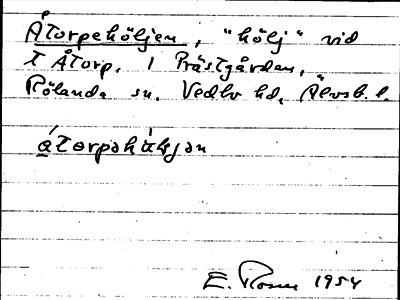 Åtorpehöljen, "hölj" vid
t Åtorp, i Prästgården,
Rölanda sn. Vedbo hd, Älvsb. l.
E. Rosen 1954